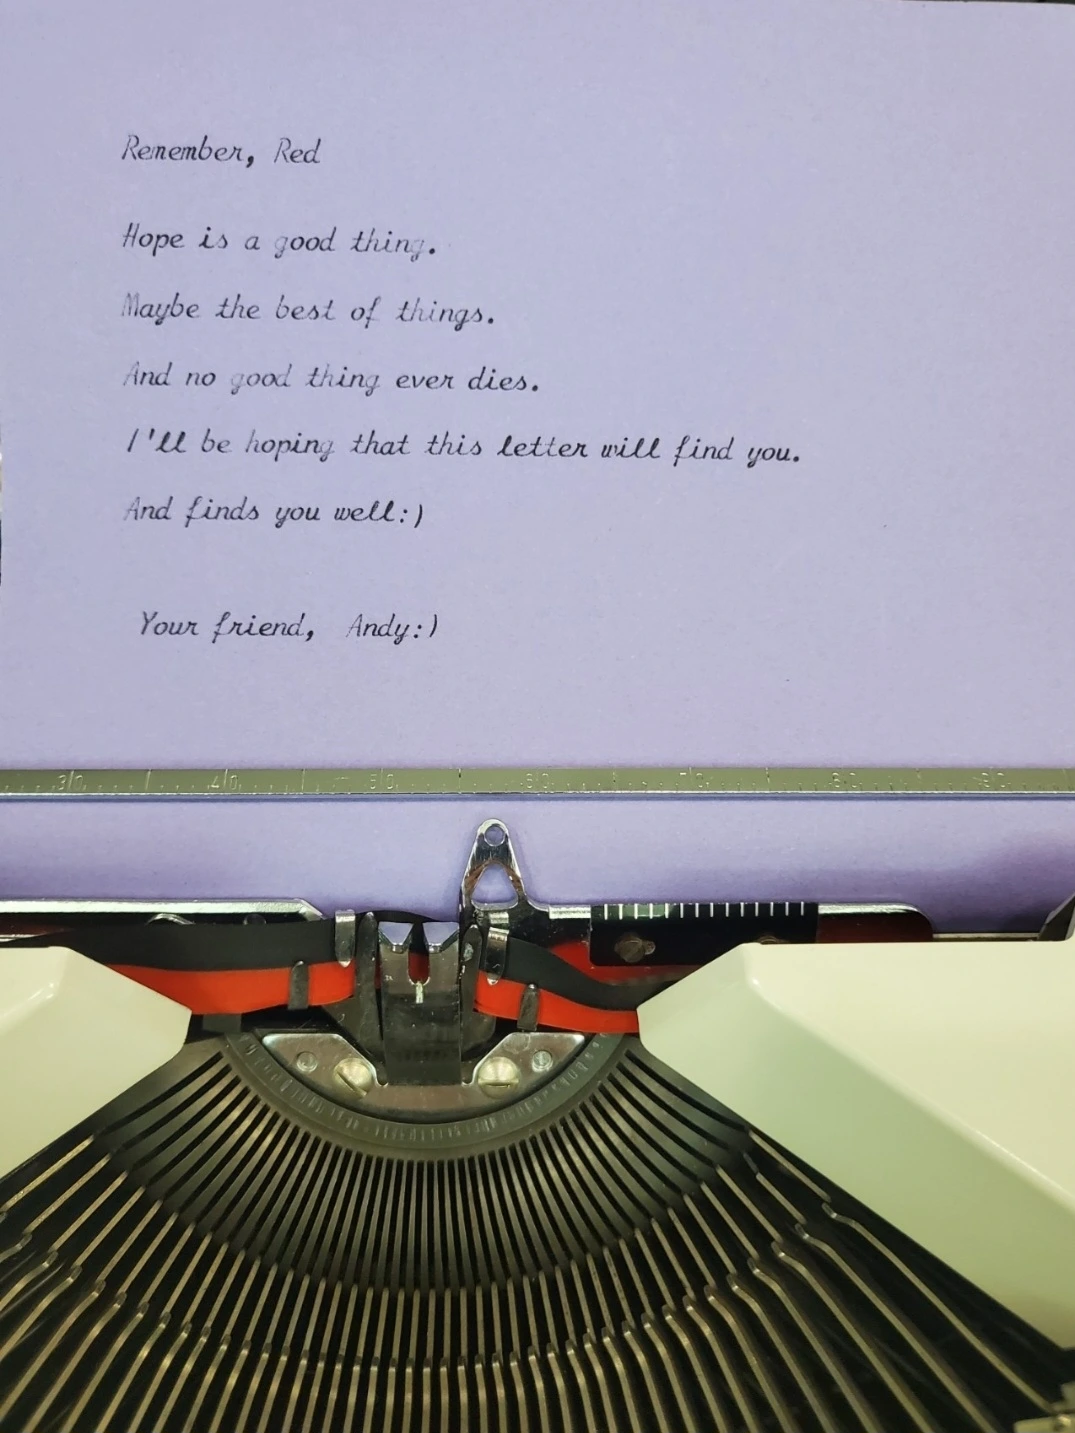 Remember, Red
Hope is a good thing.
Maybe the best of things.
And no good thing ever dies.
I'll be hoping that this letter will find you.
And finds you well:)
Your friend, Andy:)
30 40 50 60 70 80 90